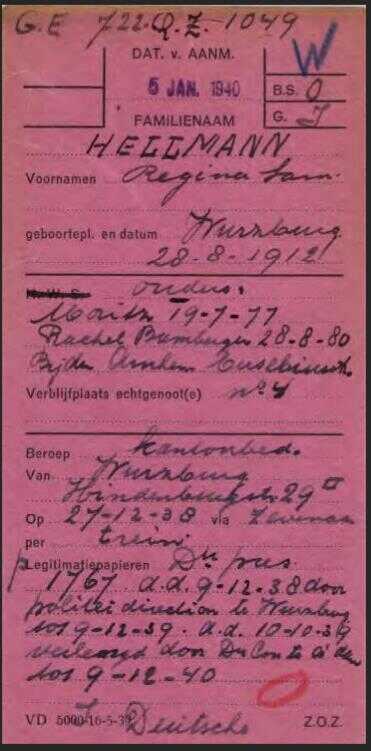 G.E 722.Q.Z.-1049
W
DAT. v. AANM.
5 JAN. 1940
B.S. O
FAMILIENAAM
G. I
HELLMANN
Voornamen Regina Sara.
geboortepl. en datum Wurzburg
28-8-1912
ouders:
Moritz 19-7-77
Rachel Bamberger 28-8-80
Beiden Arnhem
Verblijfplaats echtgenoot(e) no 4
Beroep kantoorbed.
Van Wurzburg
Hindenburgstr. 29 II
Op 27-12-38 via Zevenaar
per trein
Legitimatiepapieren Du pas
1767 d.d. 9-12-38 door
politei direction te Wurzburg
tot 9-12-39. d.d. 10-10-39
verlengd door Du Con te
tot 9-12-40
VD 5000-16-5-39 Deutsche Z.O.Z.